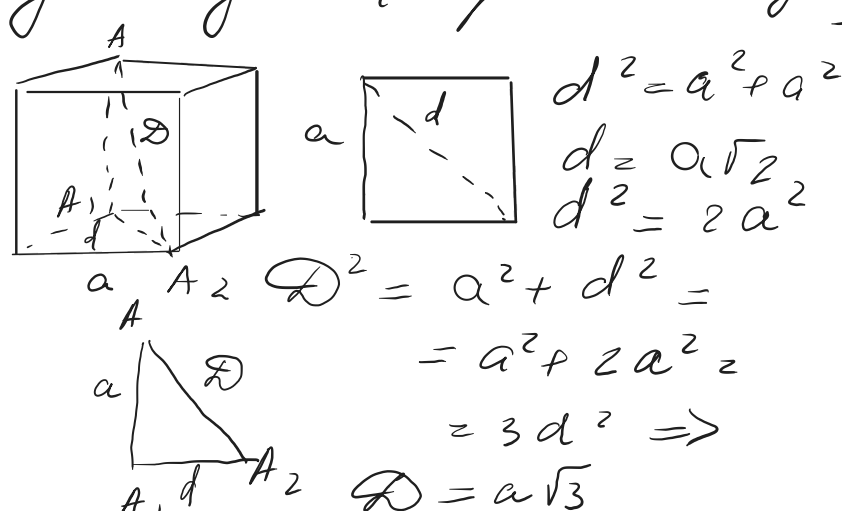 A
D
A₁
d
a
A₂
a
d
d² = a² + a²
d = a√2
d² = 2a²
D² = a² + d² =
= a² + 2a² =
= 3d² =>
D = a√3
A
a
D
A₁
d
A₂